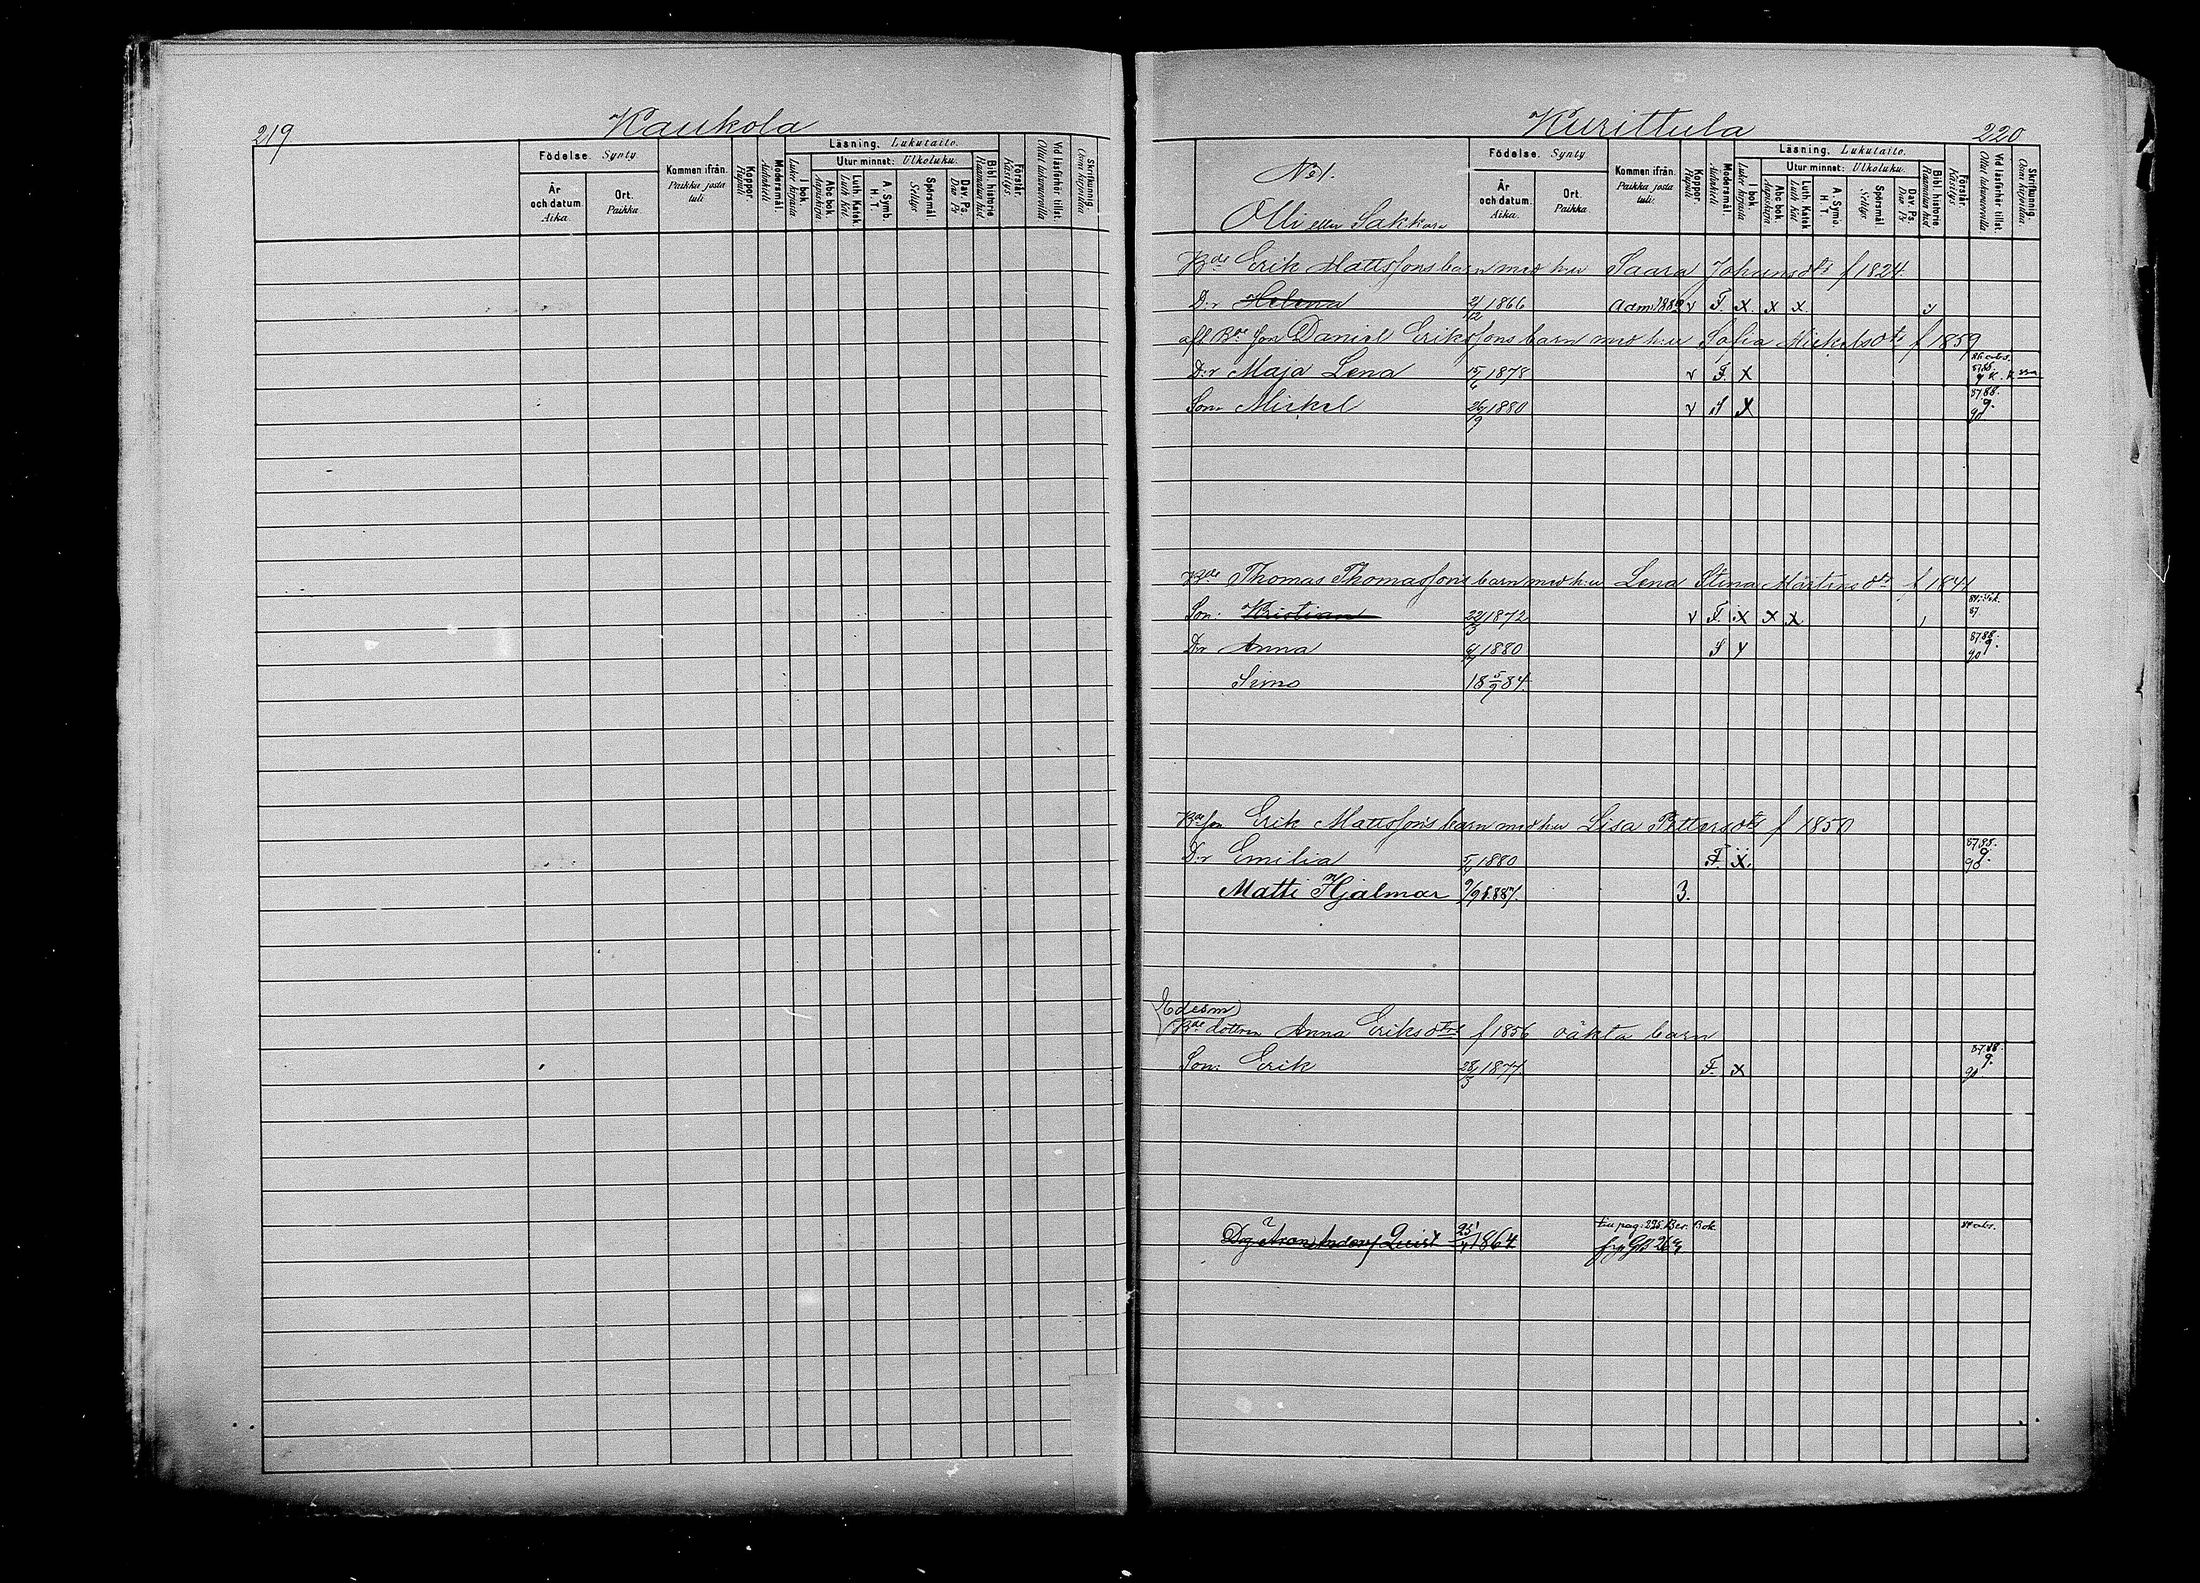 219
Kaukola
Födelse. Synty
År och datum. Aika.
Ort. Paikka.
Kommen ifrån. Paikka josta tuli
Koppor. Rupuli
Modersmål. Äidinkieli
Läsning. Lukutaito.
I bok. Lukee kirjasta
Utur minnet: Ulkoluku.
Abc bok. Aapiskirja
Luth. Katek. Luth Kat.
A. Symb. H T
Spörsmål. Selitys
Dav. Ps. Dav Ps
Bibl. historie Raamatun hist
Förstår. Käsitys
Vid läsförhör tillst. Ollut lukuvuorolla
Skrifkunnig. Osaa kirjoittaa
Kurittula
220
No 1.
Olli eller Sakkara
Födelse. Synty
År och datum. Aika.
Ort. Paikka.
Kommen ifrån. Paikka josta tuli.
Koppor. Rupuli
Modersmål. Äidinkieli
Läsning. Lukutaito.
I bok. Lukee kirjasta
Utur minnet: Ulkoluku.
Abc bok. Aapiskirja
Luth. Katek Luth Kat
A. Symb. H T
Spörsmål. Selitys
Dav. Ps. Dav Ps
Bibl. historie Raamatun hist
Förstår. Käsitys
Vid läsförhör tillst. Ollut lukuvuorolla.
Skrifkunnig. Osaa kirjoittaa.
Bde Erik Mattssons barn med h:u Saara Johansdtr f 1824.
D:r Helena 1866 Adm 1882 v F. x x x
afl Bde son Daniel Erikssons barn med h:u Sofia Mickelsdtr f 1859
D:r Maja Lena 15/6 1878 v F. x
Son Mickel 26/9 1880 v F x 87.88. 9. 90
Bde Thomas Thomassons barn med h:u Lena Stina Mårtensdtr f 1841
Son: Kristian 22/3 1872 v F. x x x 87
D:r Anna 1880 F x 87.88. 9. 90
Simo 18 5/9 84.
Bde son Erik Mattssons barn med h:u Lisa Pettersdtr f 1850
D:r Emilia 1880 F. x. 87.88. 9. 90
Matti Hjalmar 9/9 1887. 3.
Edesm
Bde dottren Anna Eriksdtrs f 1856 oäkta barn
Son: Erik 28/3 1877 F. x 87.88. 9. 90
Drg Aron Quist 1864